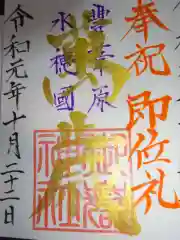 奉祝 即位礼
豐葦原
水穂國
萬歳
令和元年十月二十二日